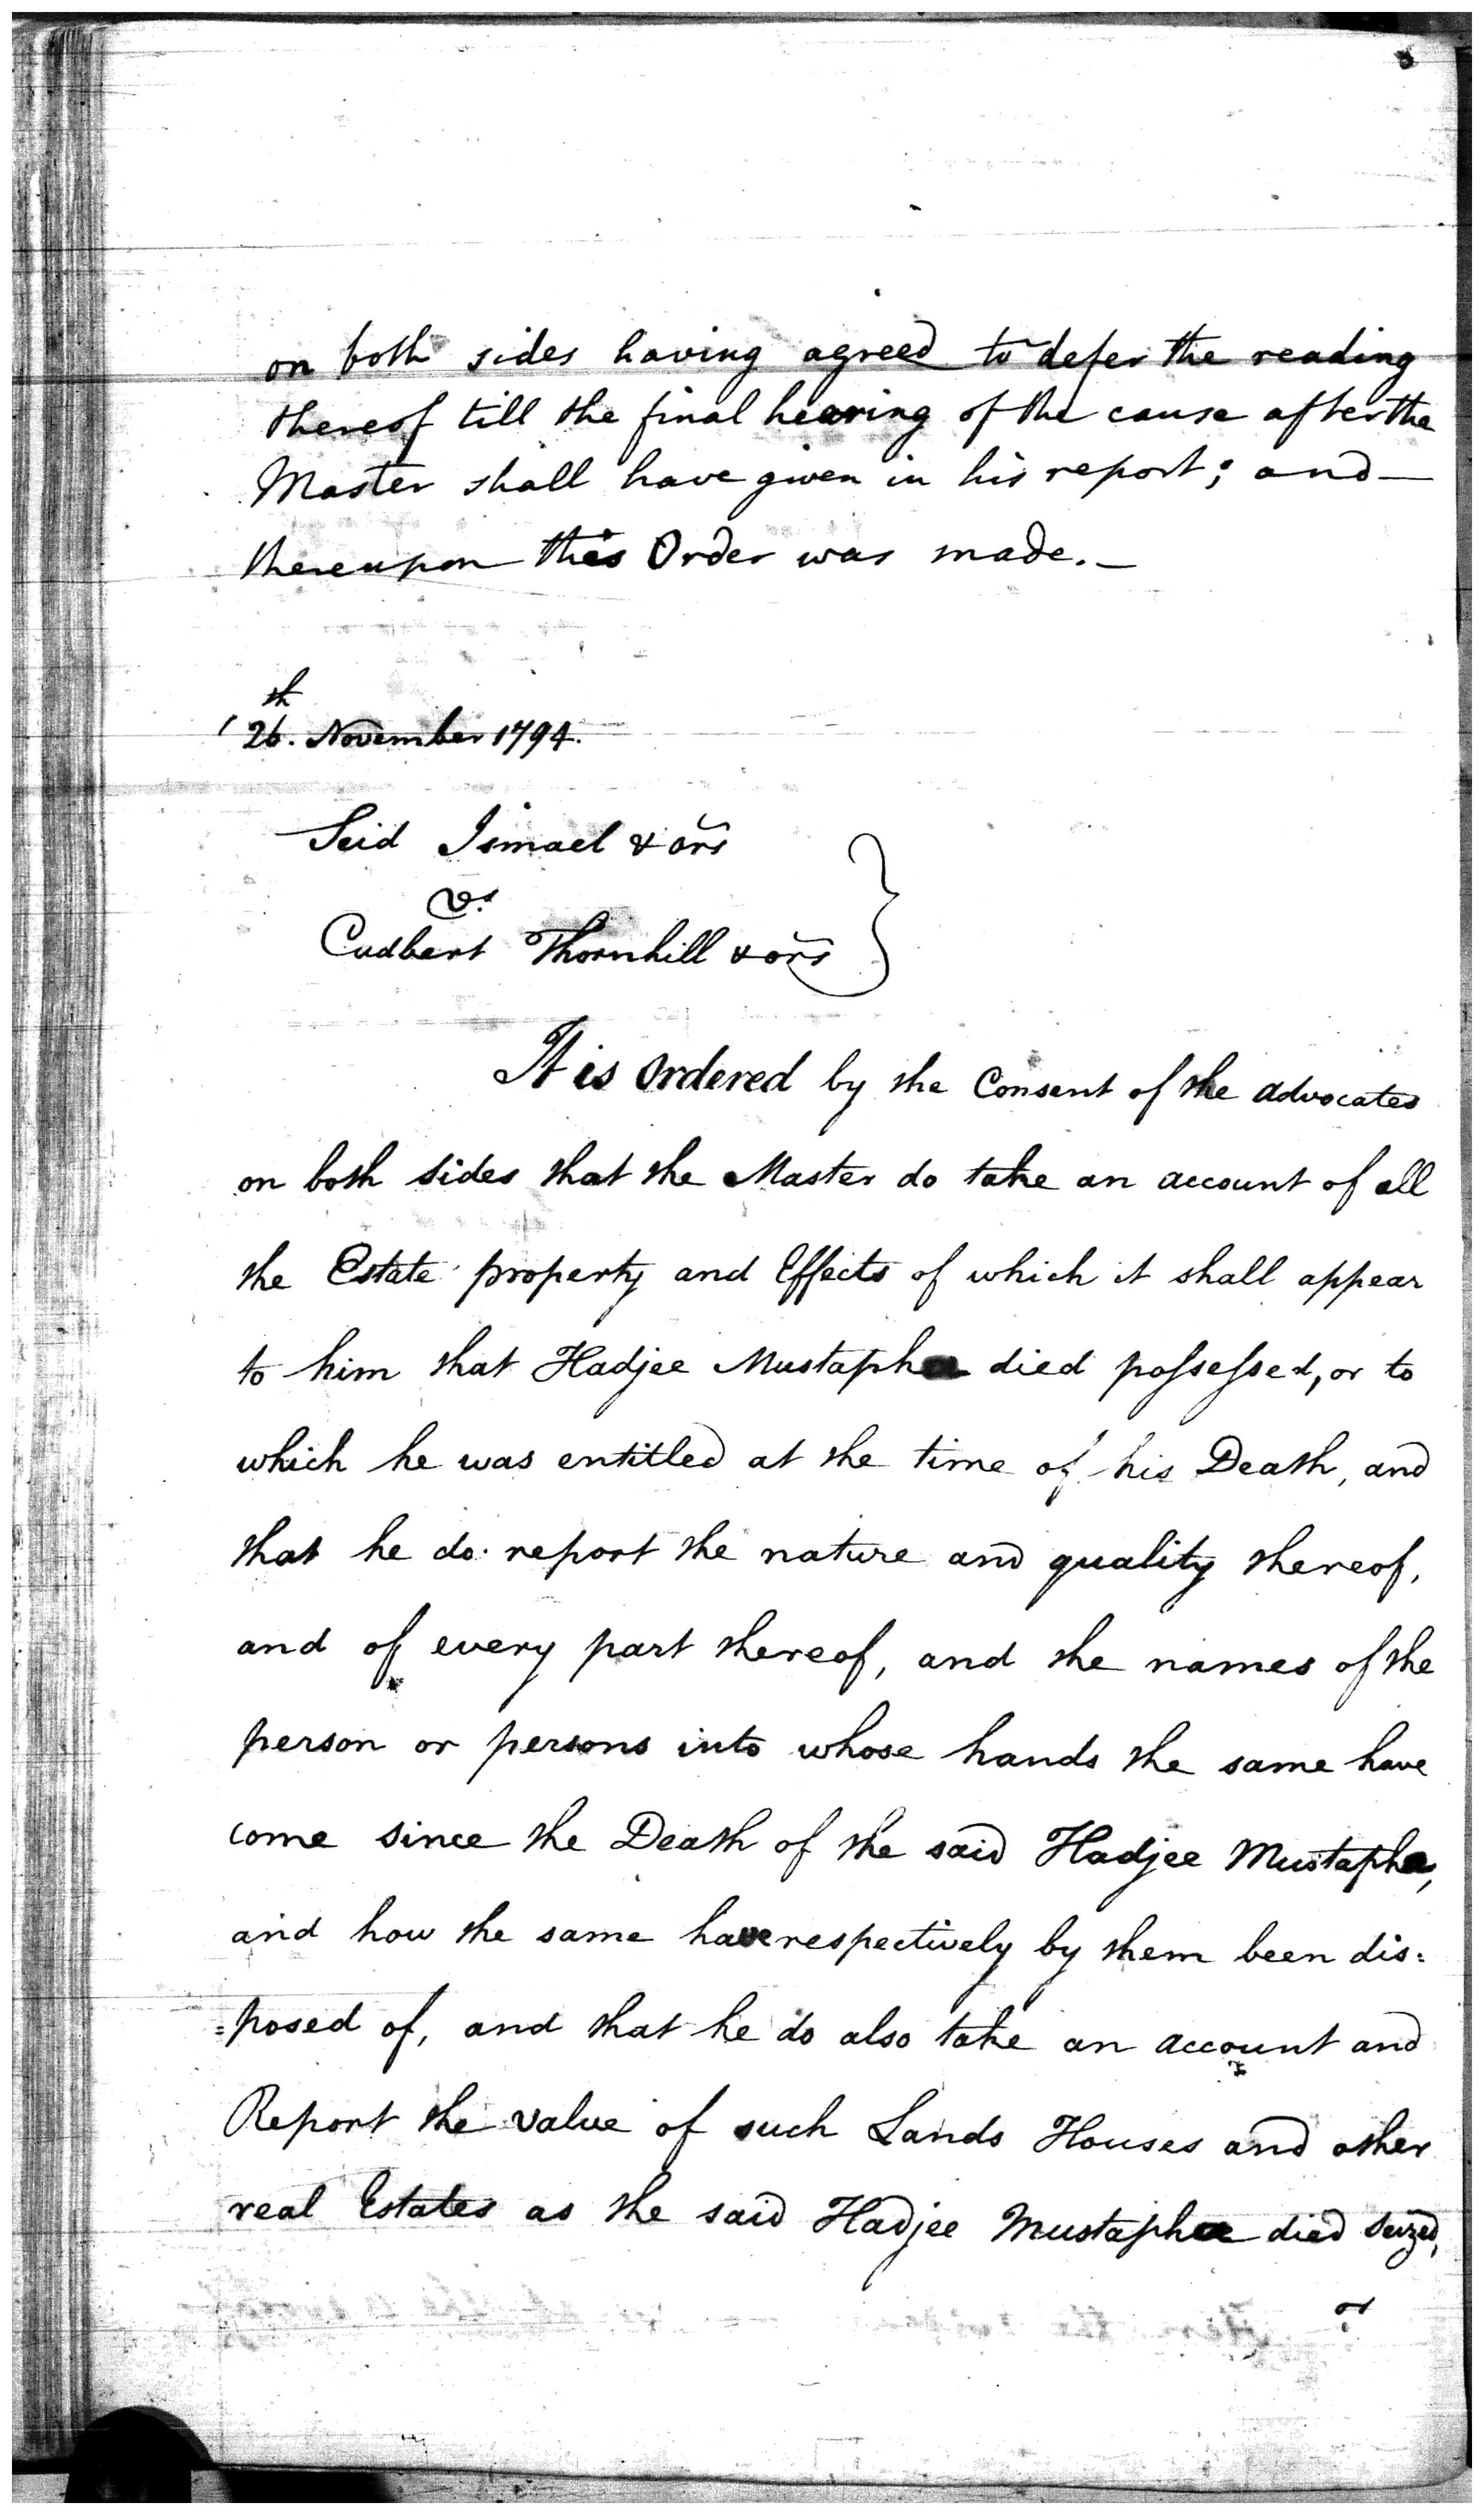 on both sides having agreed to defer the reading
thereof till the final hearing of the cause after the
Master shall have given in his report; and —
thereupon this Order was made. —
26.th November 1794.
Seid Ismael & ors
Vs.
Cudbert Thornhill & ors
It is Ordered by the Consent of the advocates
on both sides that the Master do take an account of all
the Estate property and Effects of which it shall appear
to him that Hadjee Mustapha died possessed, or to
which he was entitled at the time of his Death, and
that he do report the nature and quality thereof,
and of every part thereof, and the names of the
person or persons into whose hands the same have
come since the Death of the said Hadjee Mustapha,
and how the same have respectively by them been dis:
=posed of, and that he do also take an account and
Report the value of such Lands Houses and other
real Estates as the said Hadjee Mustapha died seized,
or